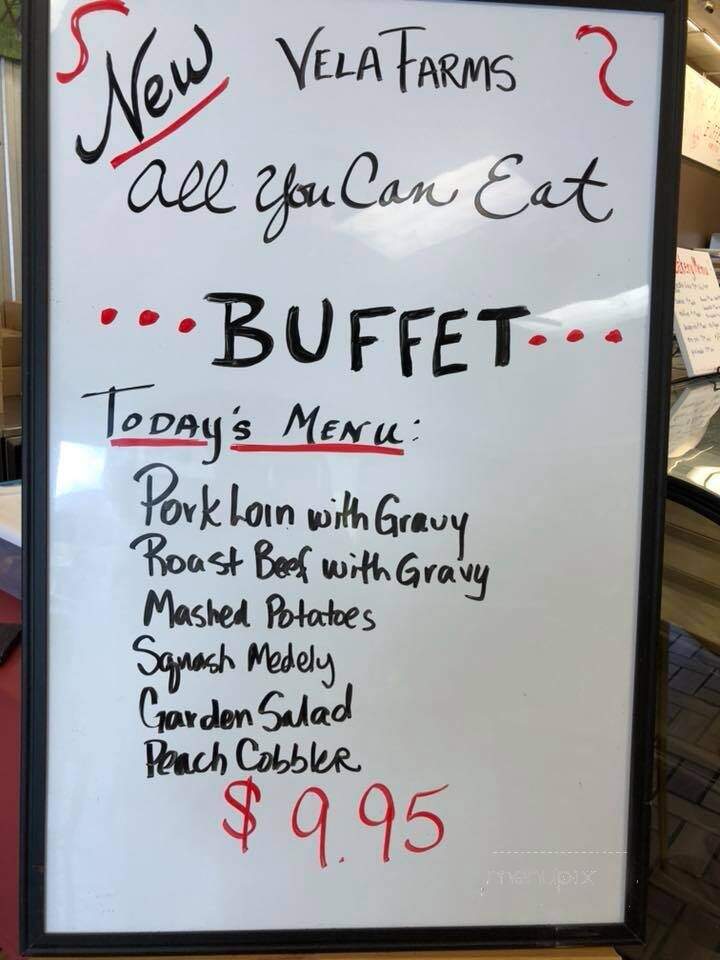 New VELA FARMS
All You Can Eat
...BUFFET...
TODAY'S MENU:
Pork Loin with Gravy
Roast Beef with Gravy
Mashed Potatoes
Squash Medely
Garden Salad
Peach Cobbler
$9.95
menupix